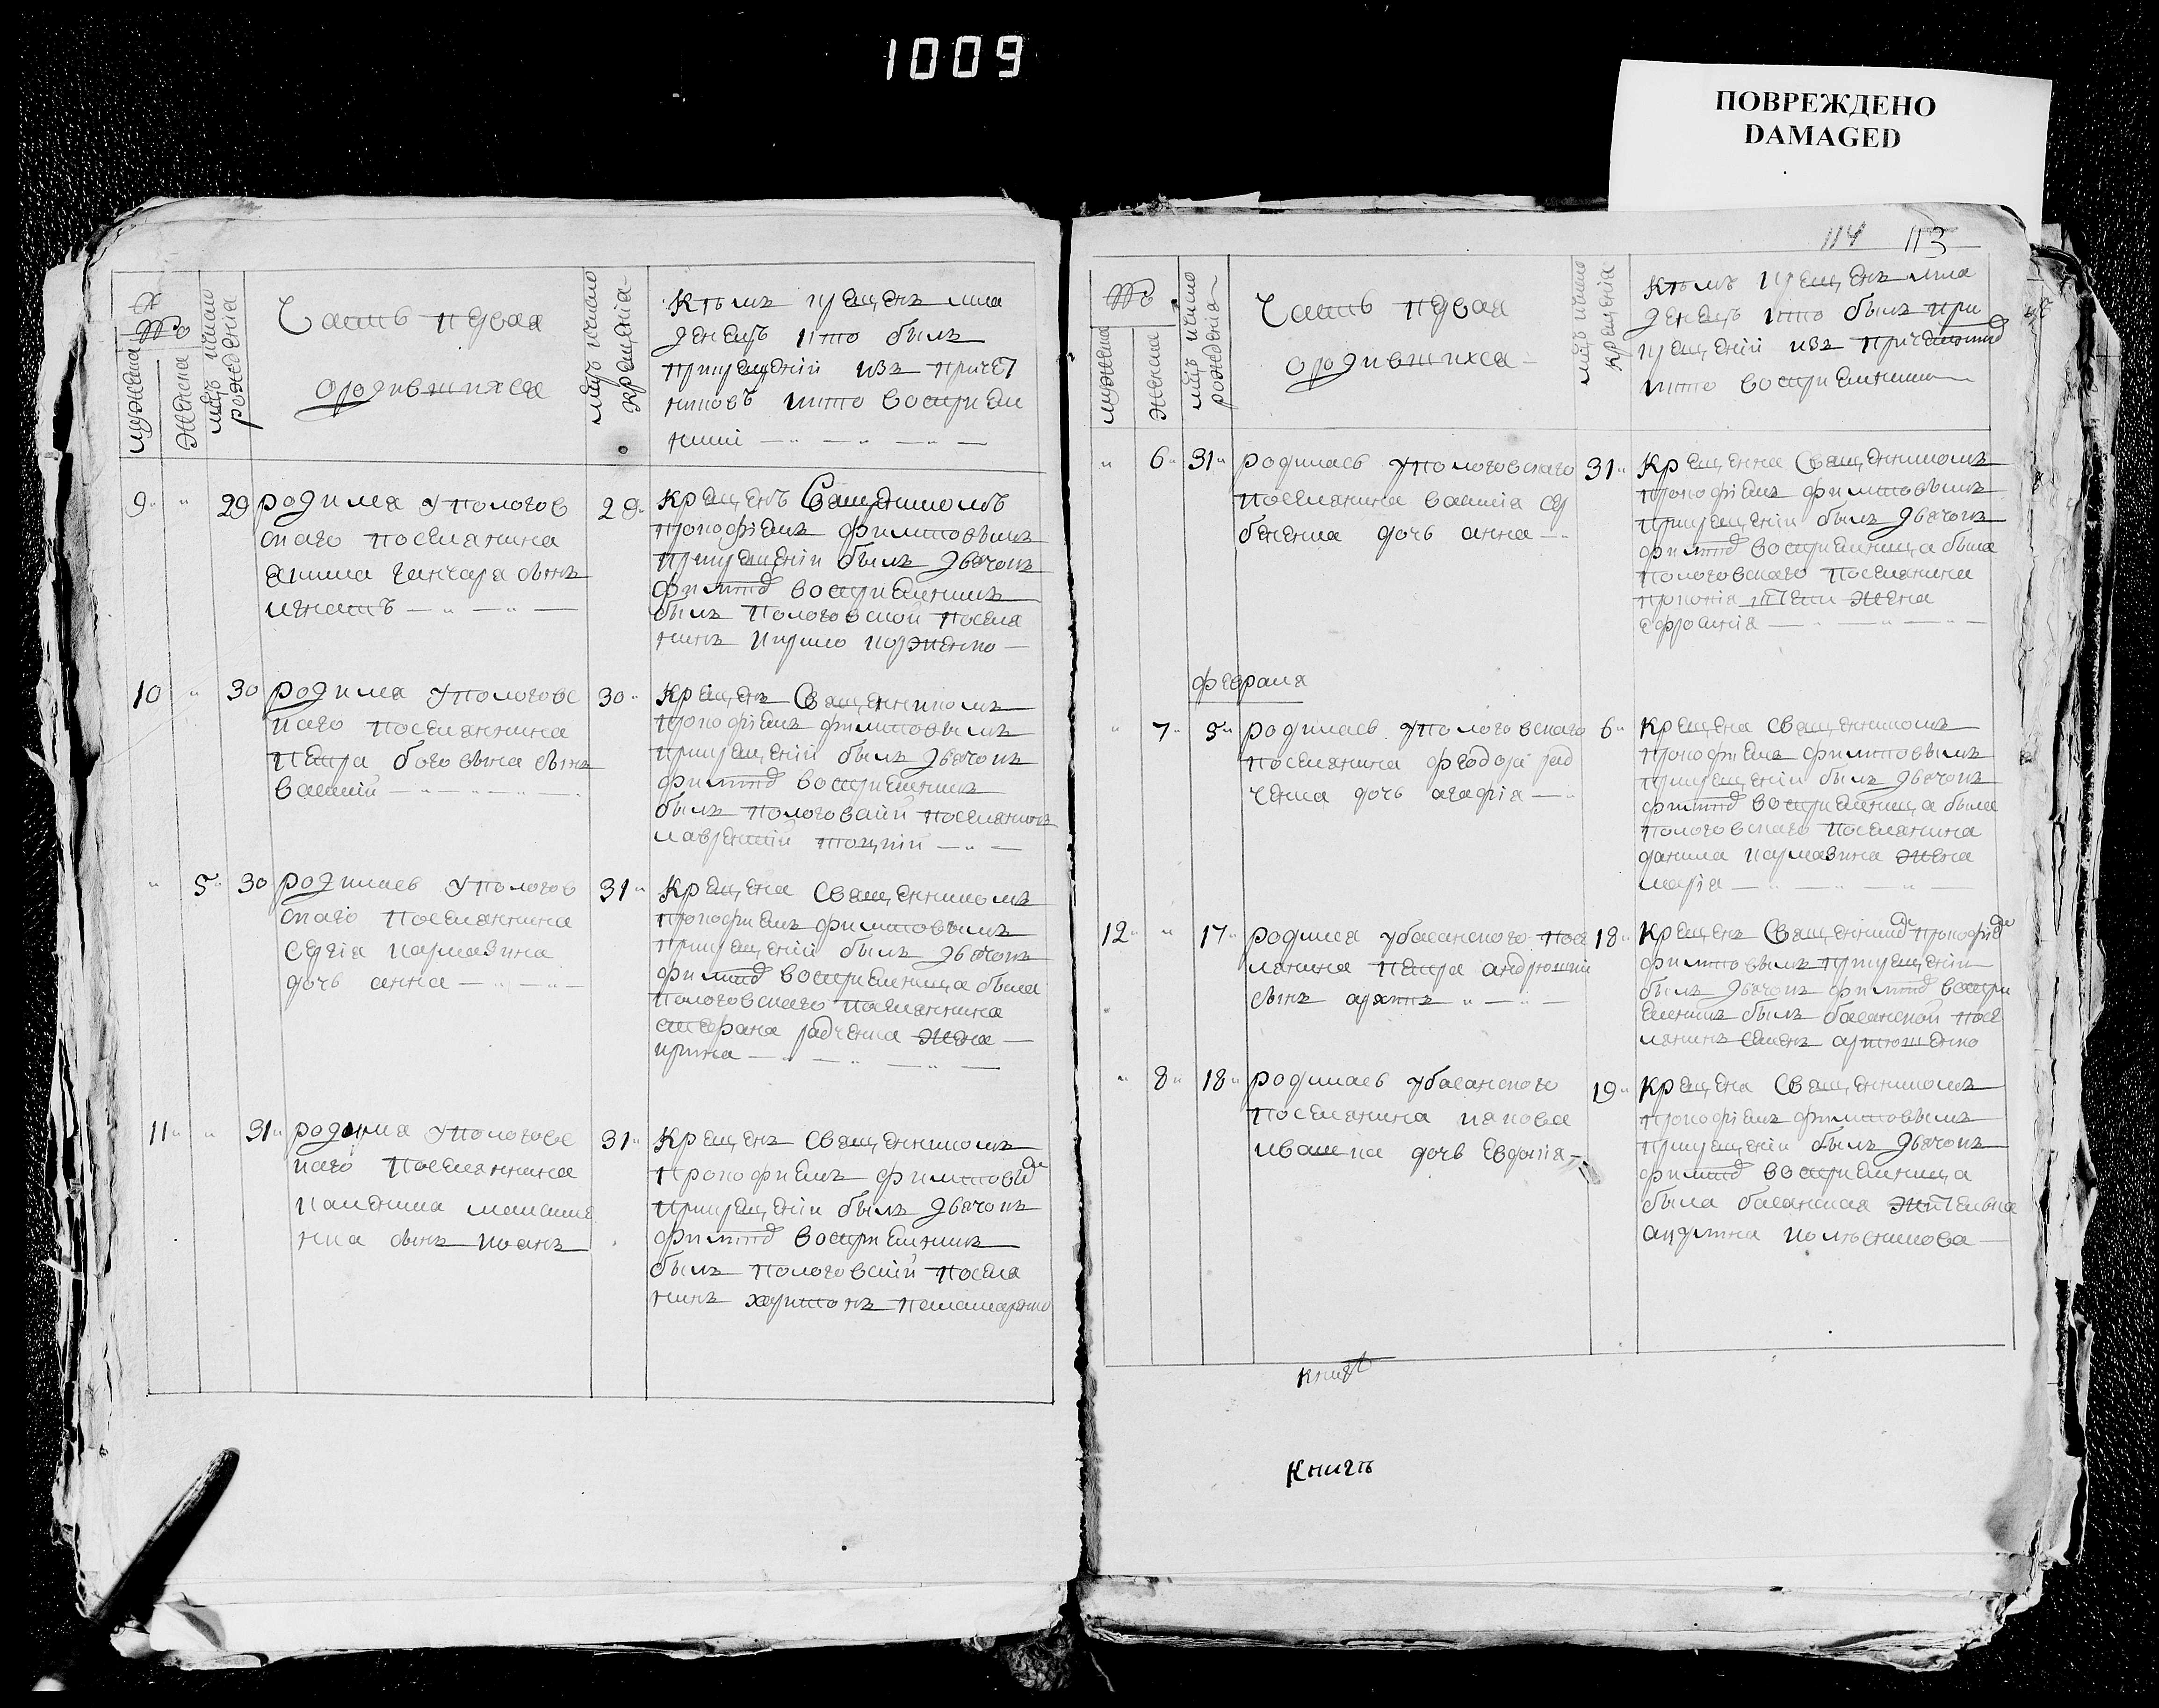 1009
ПОВРЕЖДЕНО
DAMAGED
№
мужеска
женска
мцъ ичисло рожденiя
Часть первая
ородившихся
мцъ ичисло крещенiя
Кѣмъ крещенъ мла
денецъ икто былъ
прикрещенiи изъ причет
никовъ икто воспрiем
ники
9 29 родился Упологов
скаго поселянина
сынъ
игнатъ
29
Крещенъ Священникомъ
прокофiемъ филиповымъ
прикрещенiи былъ дьячокъ
воспрiемникъ
былъ пологовской посела
нинъ кирило корженко
10 30 родился Упологовс
каго поселянина
петра боговина сынъ
василiй
30
Крещенъ Священникомъ
прокофiемъ филиповымъ
прикрещенiи былъ дьячокъ
воспрiемникъ
былъ пологовскiй поселянинъ
лаврентiй
5 30 родилась Упологов
скаго поселянина
сергiя кармазина
дочь анна
31
Крещена Священникомъ
прокофиемъ филиповымъ
прикрещенiи былъ дьячокъ
воспрiемница была
пологовскаго поселянина
стефана радченка жена
ирина
11 31 родился Упологовс
каго поселянина
сынъ иоанъ
31
Крещенъ Священникомъ
прокофиемъ
прикрещенiи былъ дьячокъ
воспрiемникъ
былъ пологовскiй посела
нинъ харитонъ
114 113
№
мужеска
женска
мцъ ичисло рожденiя
Часть первая
ородившихся
мцъ ичисло крещенiя
Кѣмъ крещенъ мла
денецъ кто былъ при
крещенiи изъ
икто воспрiемники
6 31 родилась Упологовскаго
поселянина василiя
дочь анна
31
Крещенна Священникомъ
прокофiемъ филиповымъ
прикрещенiи былъ дьячокъ
воспрiемница была
пологовскаго поселянина
жена
ефросинiя
февраля
7 5 родилась Упологовскаго
поселянина феодора рад
ченка дочь агафiя
6
Крещена священникомъ
прокофиемъ филиповымъ
прикрещенiи былъ дьячокъ
воспрiемница была
пологовскаго поселянина
данила кармазина жена
марiя
12 17 родился убасанского посе
лянина петра
сынъ архипъ
18
Крещенъ
филиповымъ прикрещенiи
былъ дьячокъ
емникъ былъ басанской посе
лянинъ семенъ артюшенко
8 18 родилась убасанского
поселянина якова
ивашка дочь евдокiя
19
Крещена Священникомъ
прокофiемъ филиповымъ
прикрещенiи былъ дьячокъ
воспрiемница
была басанская жителька
акулина
книгѣ
Книгѣ